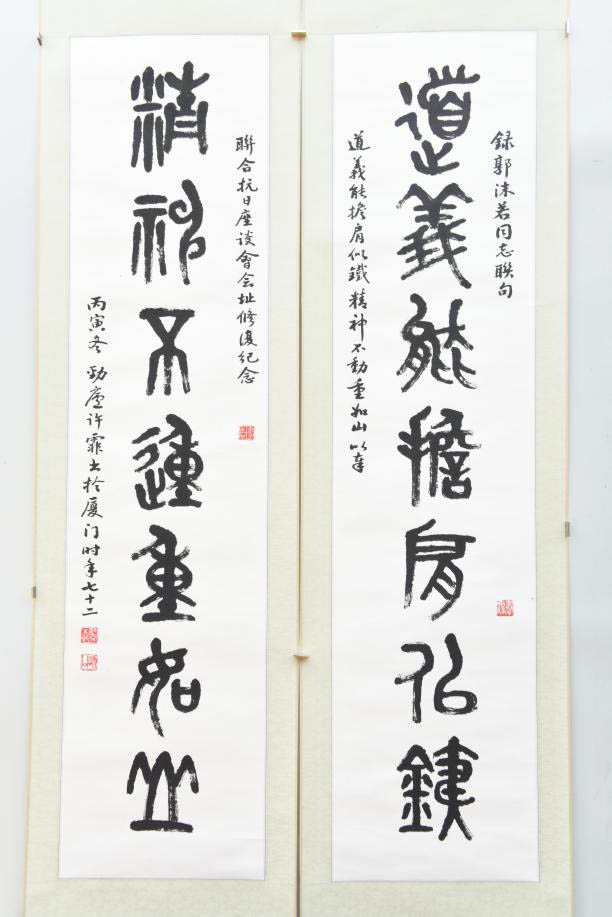 録郭沫若同志聯句
道義能擔肩佀鐵
道義能擔肩似鐵精神不動重如山以奉
聯合抗日座谈會会址修復纪念
精神不𨔝重如山
丙寅冬勁廬许霏书於厦门时年七十二